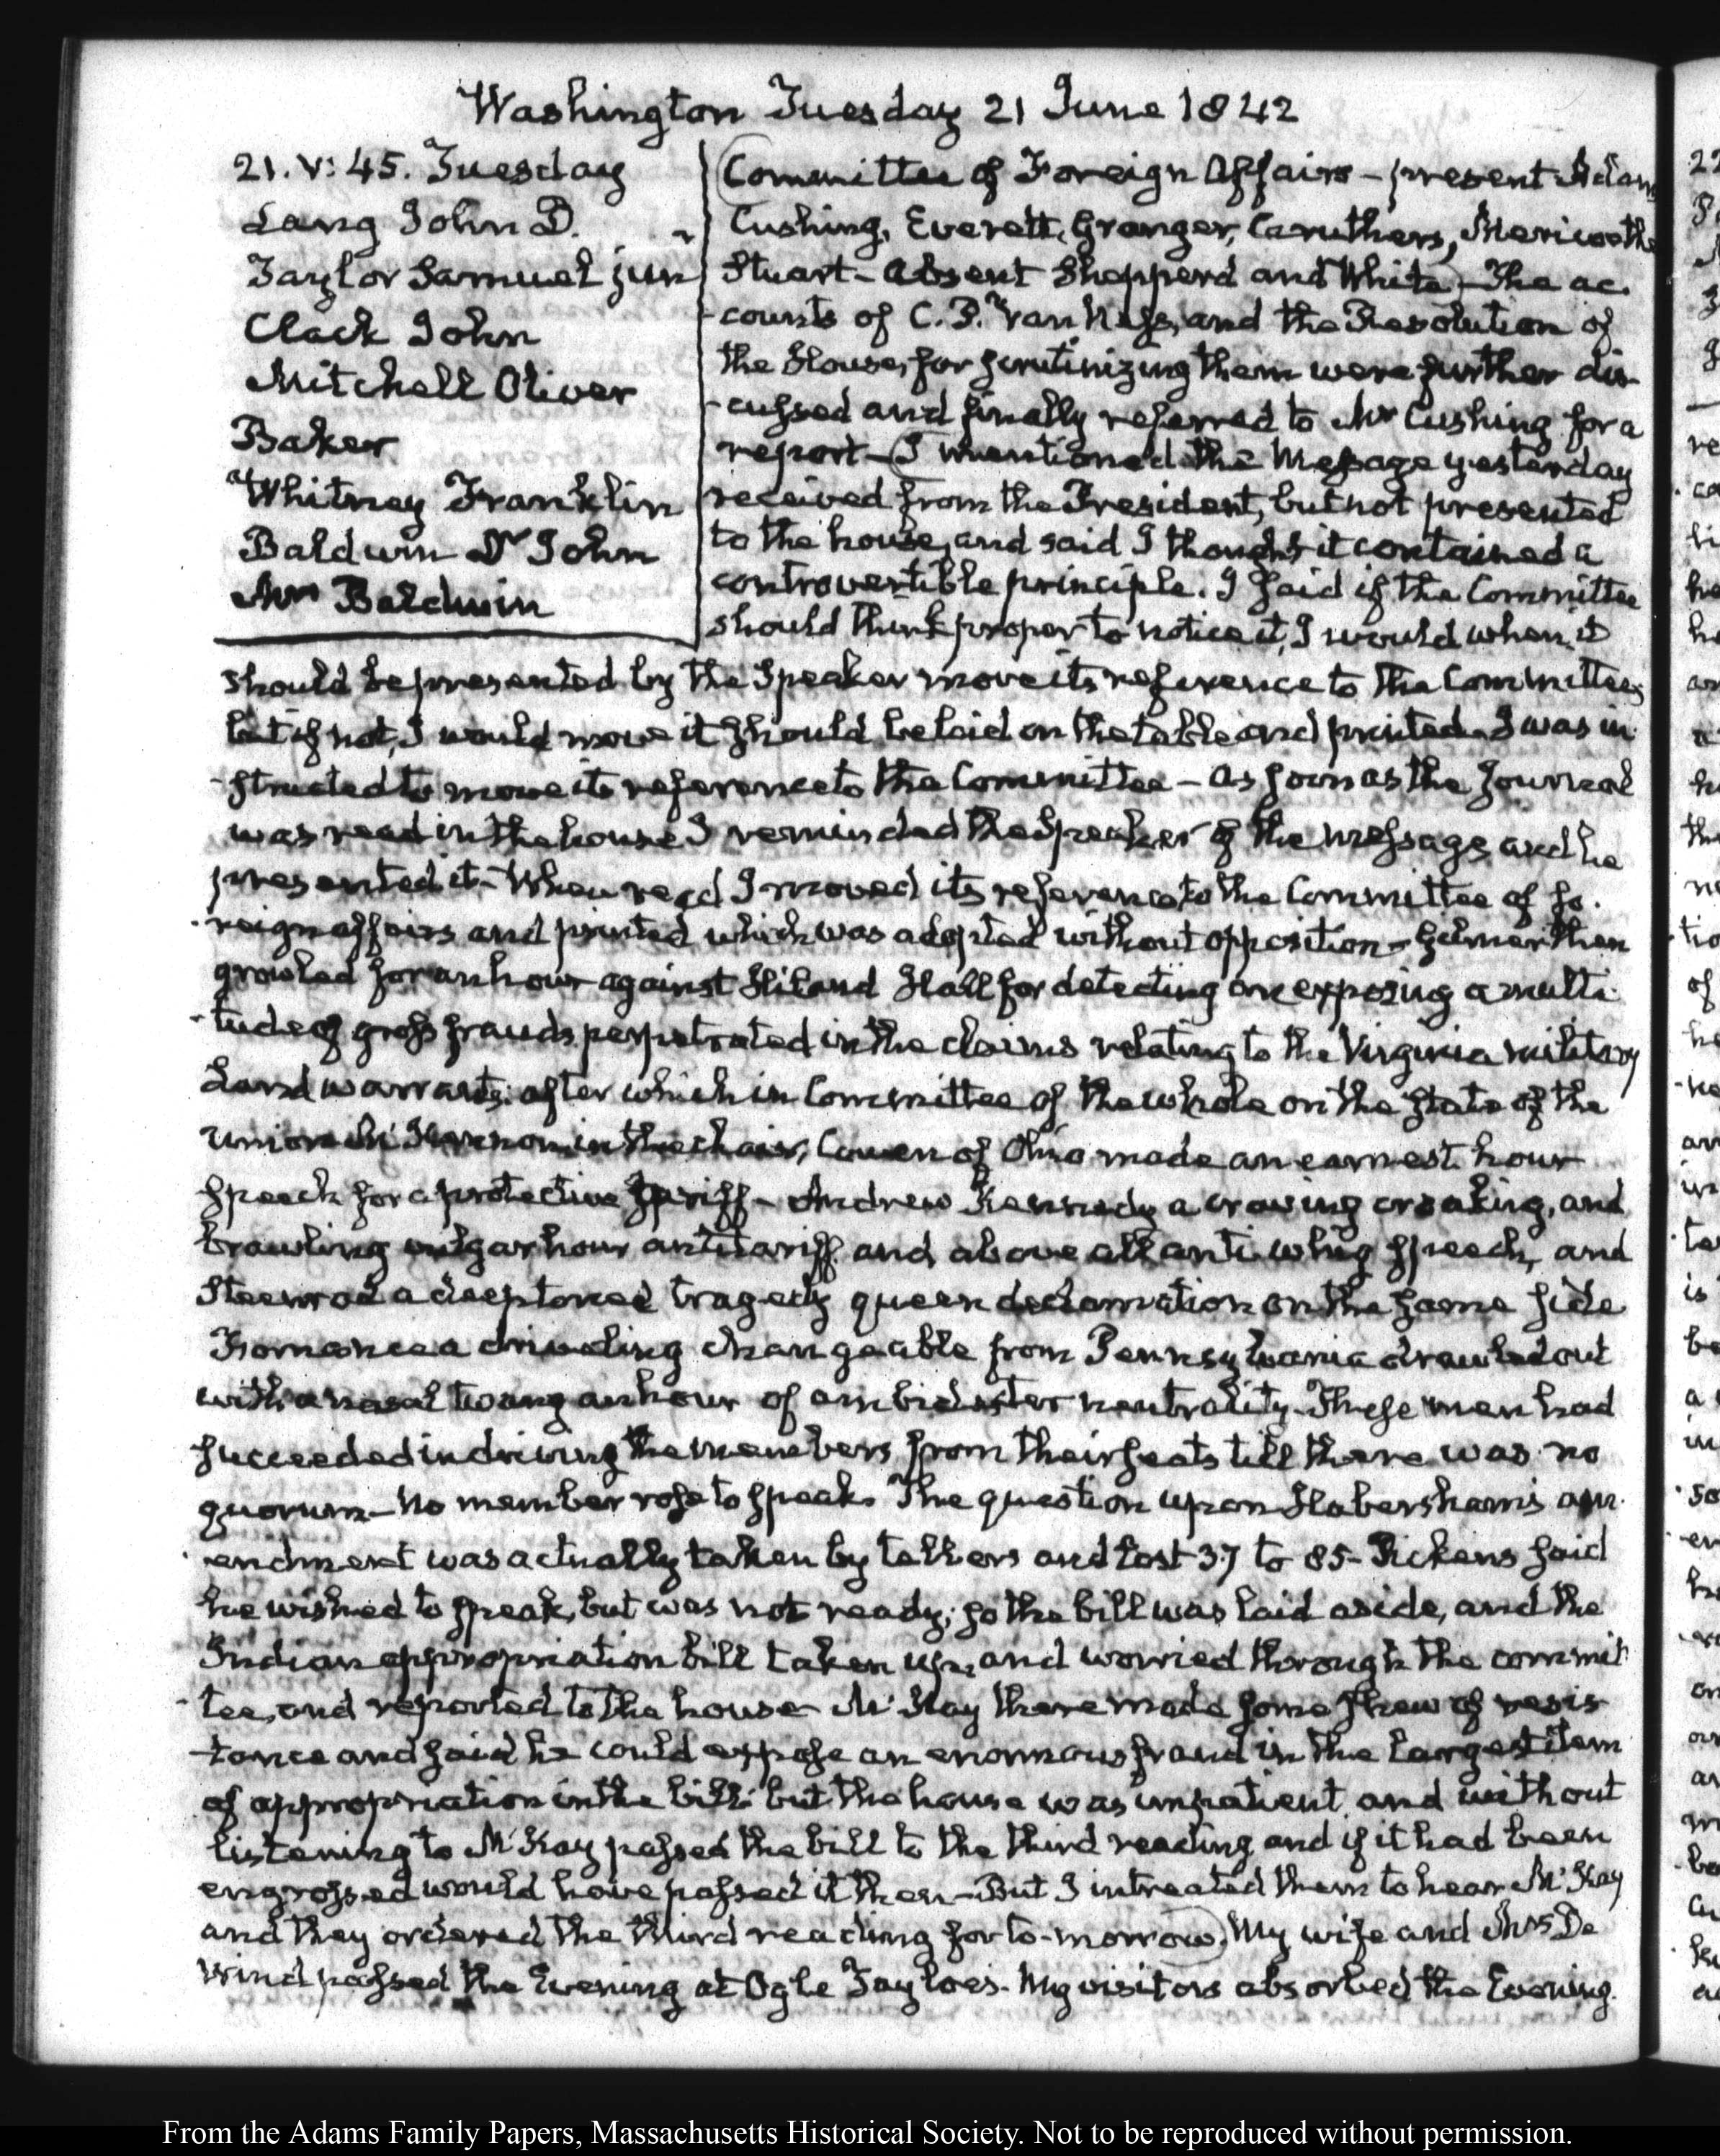 Washington Tuesday 21 June 1842
21. V: 45. Tuesday
Lang John D.
Taylor Samuel jun
Clark John
Mitchell Oliver
Baker
Whitney Franklin
Baldwin Dr John
Mrs Baldwin
Committee of Foreign Affairs – present Adams
Cushing, Everett, Granger, Caruthers, Meriwether
Stuart – Absent Shepperd and White – The ac-
-counts of C. P. Van Ness, and the Resolution of
the House, for scrutinizing them were further dis-
-cussed and finally referred to Mr Cushing for a
report – I mentioned the Message yesterday
received from the President, but not presented
to the house, and said I thought it contained a
controvertible principle. I said if the Committee
should think proper to notice it, I would when it
should be presented by the Speaker move its reference to the Committee;
but if not, I would move it should be laid on the table and printed. I was in-
-structed to move its reference to the Committee – As soon as the Journal
was read in the house I reminded the Speaker of the message, and he
presented it – When read I moved its reference to the Committee of fo-
-reign affairs and printed which was adopted without opposition – Gilmer then
growled for an hour against Hiland Hall for detecting and exposing a multi-
-tude of gross frauds perpetrated in the claims relating to the Virginia military
Land warrants: after which in Committee of the whole on the State of the
Union Mc Kennon in the chair, Cowen of Ohio made an earnest hour
speech for a protective tariff – Andrew Kennedy a crowing croaking, and
brawling vulgar hour antitariff and above all anti whig speech, and
Steenrod a deep toned tragedy queen declamation on the same side
Fornance a driveling changeable from Pennsylvania drawled out
with a nasal twang an hour of ambidexter neutrality. These men had
succeeded in driving the members from their seats till there was no
quorum – No member rose to speak. The question upon Habersham's am-
-endment was actually taken by tellers and lost 37 to 85 – Pickens said
he wished to speak, but was not ready; so the bill was laid aside, and the
Indian appropriation bill taken up, and worried through the commit-
-tee, and reported to the house – Mc Kay there made some shew of resis-
-tance and said he could expose an enormous fraud in the largest item
of appropriation in the bill: but the house was impatient and without
listening to McKay passed the bill to the third reading and if it had been
engrossed would have passed it then – But I intreated them to hear McKay
and they ordered the third reading for to-morrow. My wife and Mrs De
Wind passed the Evening at Ogle Tayloe's. My visitors absorbed the Evening.
From the Adams Family Papers, Massachusetts Historical Society. Not to be reproduced without permission.